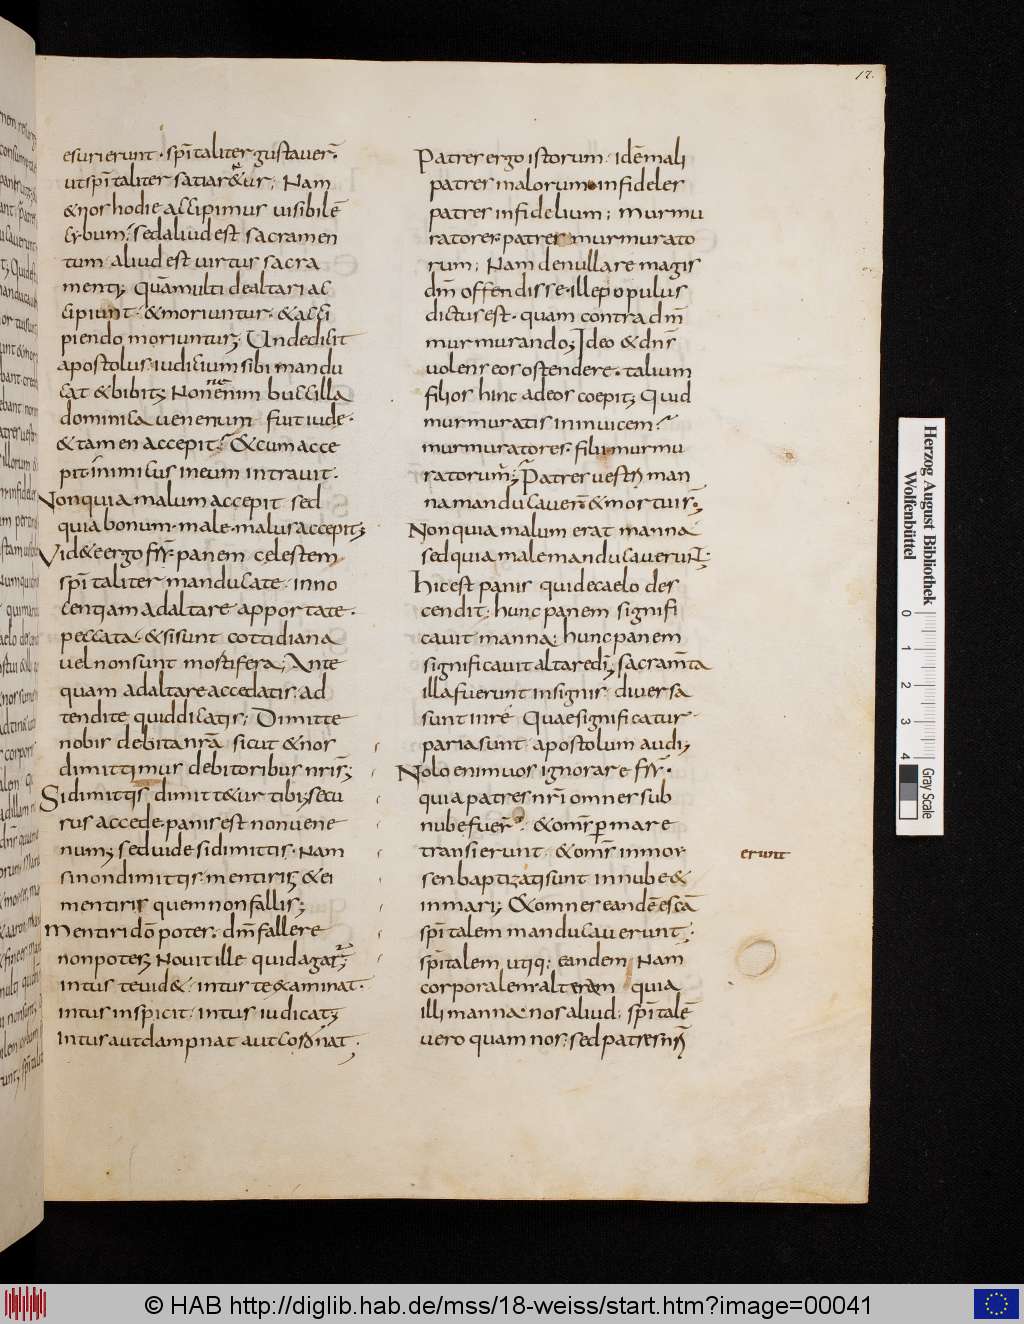 17.
esurierunt · sp̄italiter gustauer̄.
ut sp̄italiter satiar&ur; Nam
& nos hodie accipimus uisibilē
cybum; sed aliud est sacramen
tum · aliud est uirtus sacra
menti; Quam multi de altari ac
cipiunt · & moriuntur · & acci
piendo moriuntur; Unde dicit
apostolus · iudicium sibi mandu
cat & bibit; Nonne enim buccilla
dominica uenenum fuit iudę ·
& tamen accepit · & cum acce
pit inimicus in eum intrauit ·
Non quia malum accepit sed
quia bonum · male · malus accepit;
Vid&e ergo fr̄r̄ panem celestem
sp̄italiter manducate · inno
centiam ad altare apportate ·
peccata · & si sunt cottidiana
uel non sunt mortifera; Ante
quam ad altare accedatis · ad
tendite quid dicatis; Dimitte
nobis debita nr̄a sicut & nos
dimittimus debitoribus nr̄is;
Si dimittis dimitt&ur tibi; secu
rus accede · panis est non uene
num; sed uide si dimittis · Nam
si non dimittis · mentiris; & ei
mentiris quem non fallis;
Mentiri dō potes · dm̄ fallere
non potes; Nouit ille quid agas;
Intus te uid& · intus te examinat ·
intus inspicit · intus iudicat;
Intus aut dampnat aut coronat ·
Patres ergo istorum · idē mali
patres malorum · infideles
patres infidelium; murmu
ratores · patres murmurato
rum; Nam de nulla re magis
dm̄ offendisse · ille populus
dictus est · quam contra dm̄
murmurando; Ideo & dn̄s
uolens eos ostendere · talium
filios hinc ad eos coepit; Quid
murmuratis in inuicem ·
murmuratores · filii murmu
ratorum; Patres uestri man
na manducauer̄ & mortui s̄;
Non quia malum erat manna
sed quia male manducauerunt;
Hic est panis qui de caelo des
cendit; hunc panem signifi
cauit manna; hunc panem
significauit altare dī; sacram̄ta
illa fuerunt in signis · diuersa
sunt in re Quae significatur
paria sunt · apostolum audi;
Nolo enim uos ignorare fr̄r̄ ·
quia patres nr̄i omnes sub
nube fuer̄ · & om̄s per mare
transierunt · & om̄s in mos
erunt
sen baptizati sunt in nube &
in mari; & omnes eandē escā
sp̄italem manducauerunt;
sp̄italem utiq; eandem Nam
corporalem alteram quia
illi manna · nos aliud; sp̄italē
uero quam nos; sed patres nr̄i
Herzog August Bibliothek
Wolfenbüttel
0 1 2 3 4
Gray Scale
© HAB http://diglib.hab.de/mss/18-weiss/start.htm?image=00041